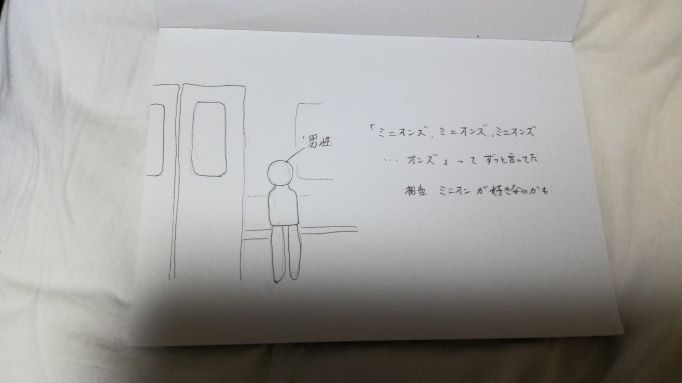 男性
「ミニオンズ、ミニオンズ、ミニオンズ
… オンズ」って ずっと言ってた
相当 ミニオン が 好きなのかも